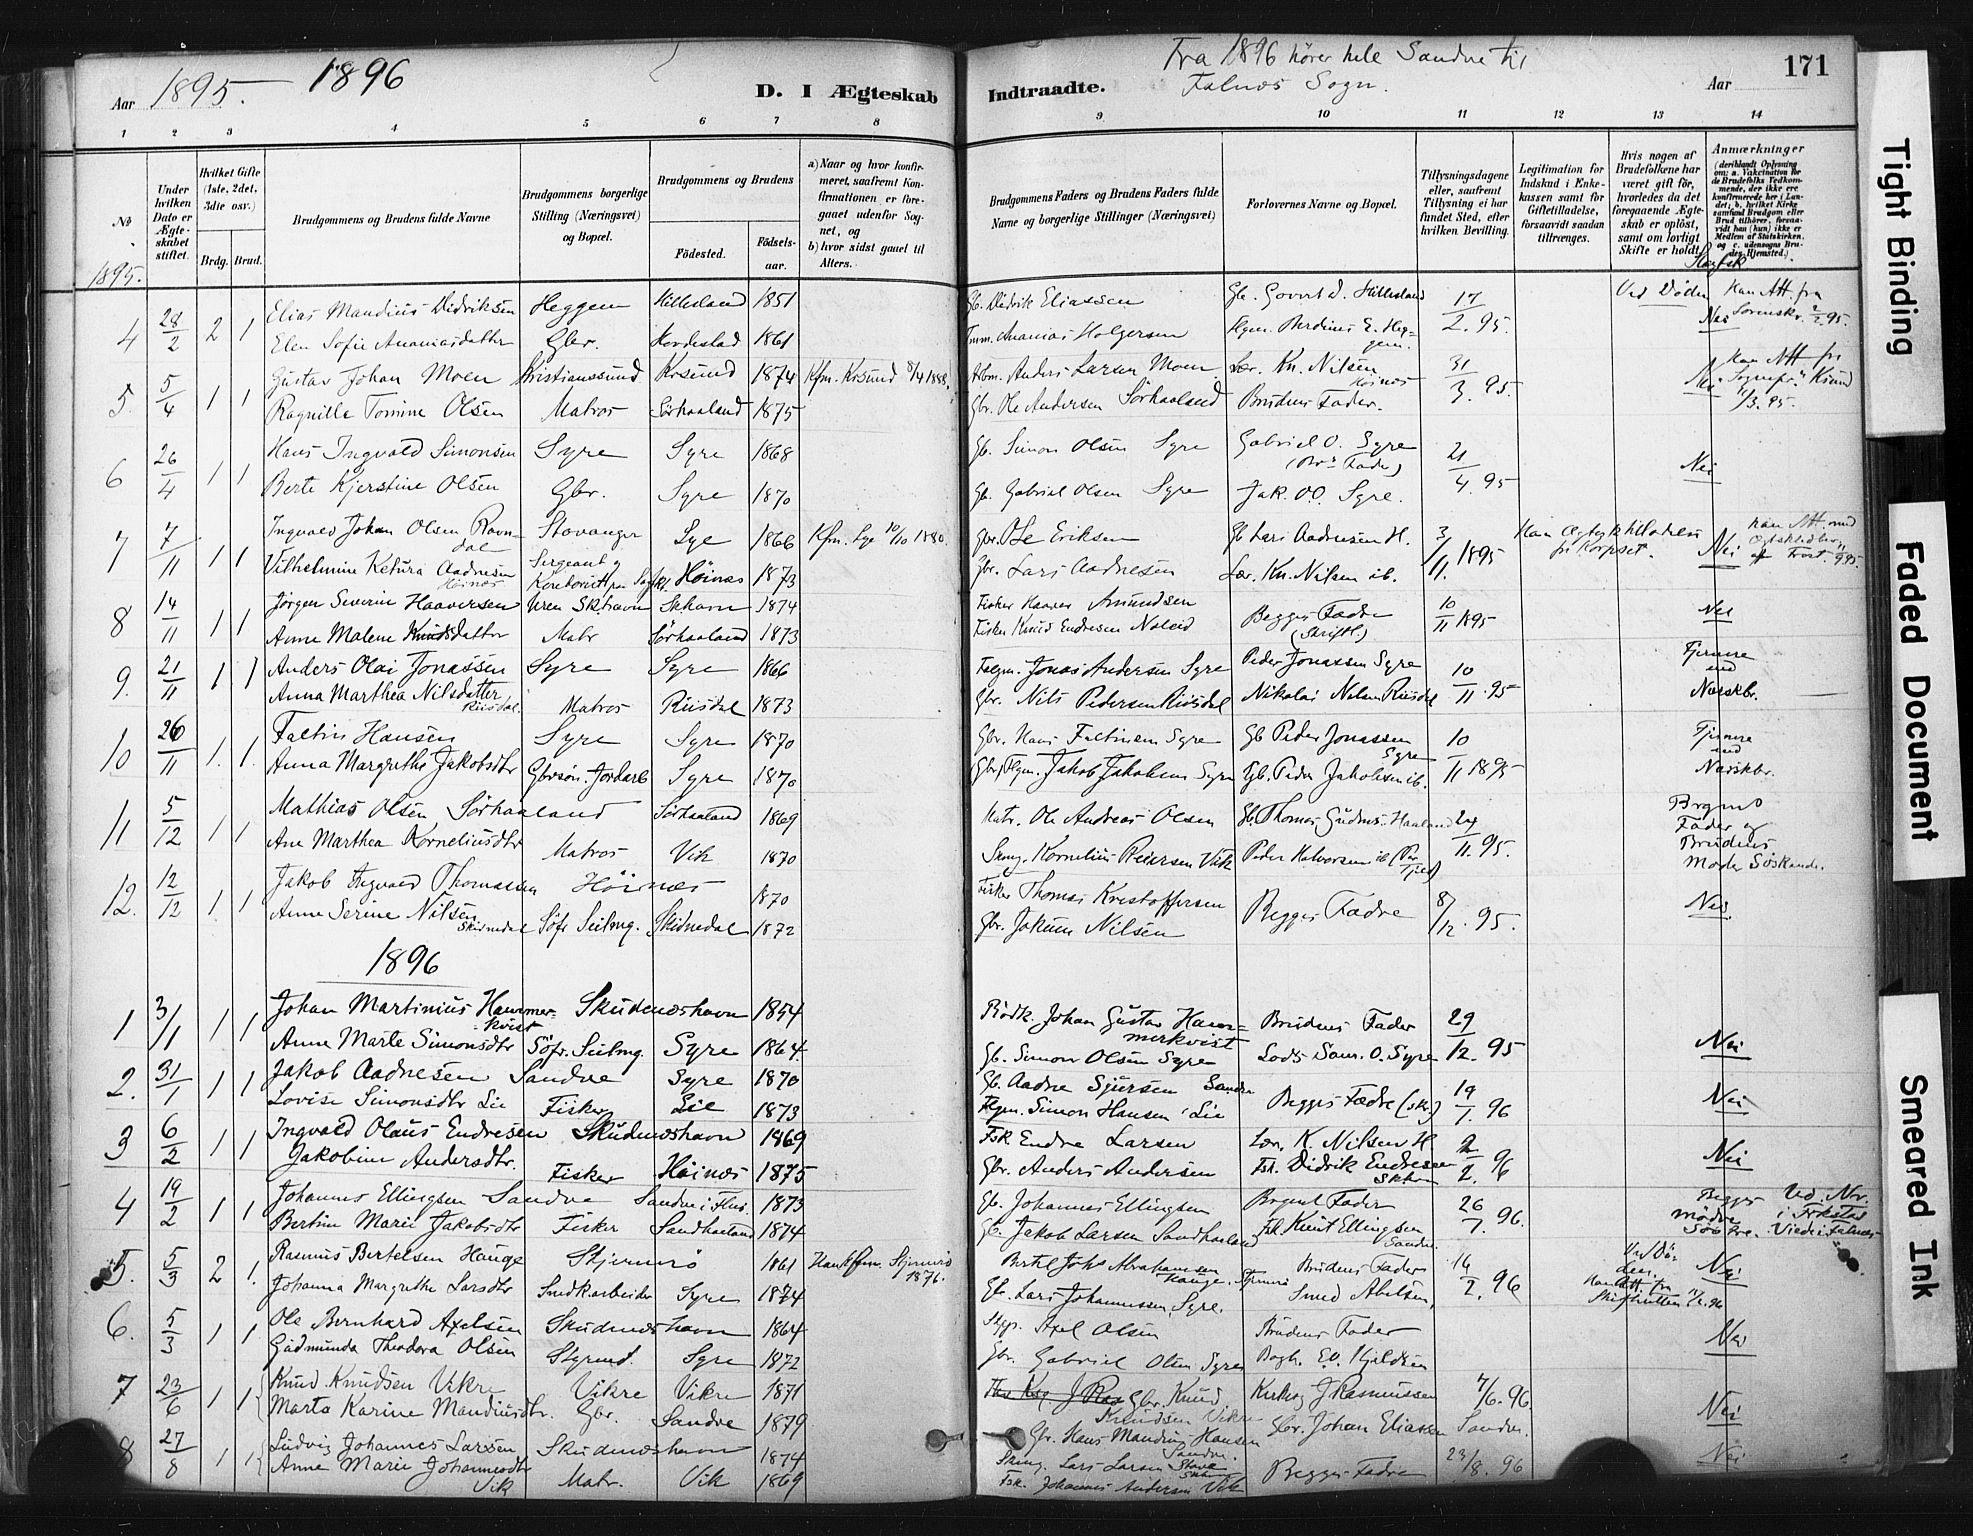 Aar 1895. 1896
D. I Ægteskab
Indtraadte.
Fra 1896 hører hele Sandve til
Falnes Sogn.
Aar
171
1 2 3 4 5 6 7 8
9 10 11 12 13 14
№
Under hvilken Dato er Ægteskabet stiftet.
Hvilket Gifte (1ste, 2det, 3die osv.)
Brdg. Brud.
Brudgommens og Brudens fulde Navne
Brudgommens borgerlige Stilling (Næringsvei) og Bopæl.
Brudgommens og Brudens
Fødested.
Fødselsaar.
a) Naar og hvor konfirmeret, saafremt Konfirmationen er foregaaet udenfor Sognet, og
b) hvor sidst gaaet til Alters.
Brudgommens Faders og Brudens Faders fulde Navne og borgerlige Stillinger (Næringsvei)
Forlovernes Navne og Bopæl.
Tillysningsdagene eller, saafremt Tillysning ei har fundet Sted, efter hvilken Bevilling.
Legitimation for Indskud i Enkekassen samt for Giftetilladelse, forsaavidt saadan tiltrænges.
Hvis nogen af Brudefolkene har været gift før, hvorledes da det foregaaende Ægteskab er opløst, samt om lovligt Skifte er holdt.
Anmærkninger
(deriblandt Oplysning om: a. Vaccination for de Brudefolks Vedkommende, der ikke ere konfirmerede her i Landet; b. hvilket Kirkesamfund Brudgom eller Brud tilhører, forsaavidt han (hun) ikke er Medlem af Statskirken, og c. udensogns Brudes Hjemsted.)
1895.
4 28/2 2 1 Elias Mandius Didriksen Heggem Hillesland 1851 Gb. Didrik Eliassen Gb. Govert d. Hillesland 17/2. 95. Ved Døden Han Att. fra
Elen Sofie Ananiasdatter Gbr. Hordestad 1861 Ananias Holgersen Berdinus E. Heggem. Nei Sorenskr. 2/2 95.
5. 5/4 1 1 Gustav Johan Moen Kristianssund Krsund 1874 Kfm. Krsund 8/4 1888. Anders Larsen Moen Lær. Kn. Nilsen Høinæs 31/3. 95. Nei Han Att fra Sognepr. Krsund
Ragnille Tomine Olsen Matros Sørhaaland 1875 Gbr. Ole Andersen Sørhaaland Brudens Fader. 1/3. 95.
6 26/4 1 1 Hans Ingvald Simonsen Syre Syre 1868 Gb. Simon Olsen Syre Gabriel O. Syre (Brs Fader) 21/4. 95 Nei
Berte Kjerstine Olsen Gbr. Syre 1870 Gb. Gabriel Olsen Syre Jak. O.O. Syre.
7 7/11 1 1 Ingvald Johan Olsen Ravndal Stavanger Lye 1866 Kfm. Lye 10/10 1880. Gbr. Ole Eriksen Gb Lars Aadnesen H. 3/11. 1895 Nei
Vilhelmine Ketura Aadnesen Høinæs Sergeant og Høinæs 1873 Gbr. Lars Aadnesen Lær. Kn. Nilsen ib.
8 14/11 1 1 Jørgen Severin Haaversen Uren Skhavn Skhavn 1874 Fisker Haaver Amundsen Begges Fædre (skriftl.) 10/11 1895 Nei
Anne Malene Knudsdatter Matr Sørhaaland 1873 Fisker Knud Endresen
9. 21/11 1 1 Anders Olai Jonassen Syre Syre 1866 Jonas Andersen Syre Peder Jonassen Syre 10/11. 95 Fjernere end
Anna Marthea Nilsdatter Riisdal. Matros Riisdal 1873 Gbr. Nils Pedersen Riisdal Nikolai Nilsen Riisdal Næskbr.
10 26/11 1. 1. Faltin Hansen Syre Syre 1870 Gbr. Hans Faltinsen Syre Gb Peder Jonassen Syre 10/11 1895 Fjernere end
Anna Margrethe Jakobsdtr Gbrsøn. Jordarb Syre 1870 Jakob Jakobsen Syre Gb. Peder Jakobsen ib. Næskbr.
11 5/12 1 1 Mathias Olsen Sørhaaland Sørhaaland 1869 Matr. Ole Andreas Olsen Gb. Thomas Gudms. Haaland 24/11. 95. Brgms Fader og
Ane Marthea Korneliusdtr Matros Vik 1870 Kornelius Reiersen Vik Peder Halvorsen ib Brudens Moder Søskende.
12. 12/12 1 1 Jakob Ingvald Thomassen Høinæs 1870 Fisker Thomas Kristoffersen Begges Fædre 8/12. 95. Nei.
Anne Serine Nilsen Skidnedal Søfr Seilmg. Skidnedal 1872 Gbr. Jokum Nilsen
1896
1 3/1 1 1 Johan Martinius Hammerkvist Skudenæshavn 1854 Johan Gustav Hammerkvist Brudens Fader 29/12. 95 Nei
Anne Marte Simonsdtr Søfr. Seilmg. Syre 1864 Gb. Simon Olsen Syre Lods Sam. O. Syre
2. 31/1 1 1 Jakob Aadnesen Sandve Syre 1870 Gb. Aadne Sjursen Sandve Begges Fædre (skr.) 19/1. 96 Nei
Lovise Simonsdtr Lie Fisker Lie 1873 Simon Hansen Lie
3 6/2 1 1 Ingvald Olaus Endresen Skudenæshavn 1869 Fsk Endre Larsen Lær. K. Nilsen H. 2/2. 96 Nei
Jakobine Andersdtr. Fisker Høinæs 1875 Gbr. Anders Andersen Fsk. Didrik Endresen Skhavn
4 19/2 1 1 Johannes Ellingsen Sandve Sandve i Flns. 1873 Gb. Johannes Ellingsen Brgms Fader 26/1. 96. Begges Mødre Søstre.
Bertine Marie Jakobsdtr Fisker Sandhaaland 1874 Gb. Jakob Larsen Sandhaaland Fsk. Knut Ellingsen Sandve.
5. 5/3 2 1. Rasmus Bertelsen Hauge Stjernerø 1861 Han kfm. Stjernerø 1876. Bertel Johs Abrahamsen Hauge, Stjernerø Brudens Fader 16/2. 96 Ved Døden. Nei
Johanna Margrethe Larsdtr Smedkarbeider Syre 1874 Gb. Lars Johannessen, Syre. Smed Abelsen, Han Att. fra Skifteretten
6. 5/3 1 1 Ole Bernhard Axelsen Skudenæshavn 1864 Axel Olsen Brudens Fader Nei
Gudmunda Theodora Olsen Styrmd. Syre 1872 Gbr. Gabriel Olsen Syre Bogh. E.O. Kjeldsen
7 23/6 1 1 Knud Knudsen Vikre Vikre Vikre 1871 Gbr. Knud Knudsen Vikre Kirkesg J Rasmussen 7/6. 96. Nei
Marta Karine Mandiusdtr. Gbr. Sandve 1879 Gbr. Hans Mandius Hansen Sandve. Gbr. Johan Eliassen Sandve.
8 27/8 1 1 Ludvig Johannes Larsen Skudenæshavn 1874 Lars Larsen Begges Fædre 23/8. 96 Nei
Anne Marie Johannesdtr Vik Matr. Vik 1869 Fsk. Johannes Andersen Vik
Tight Binding
Faded Document
Smeared Ink